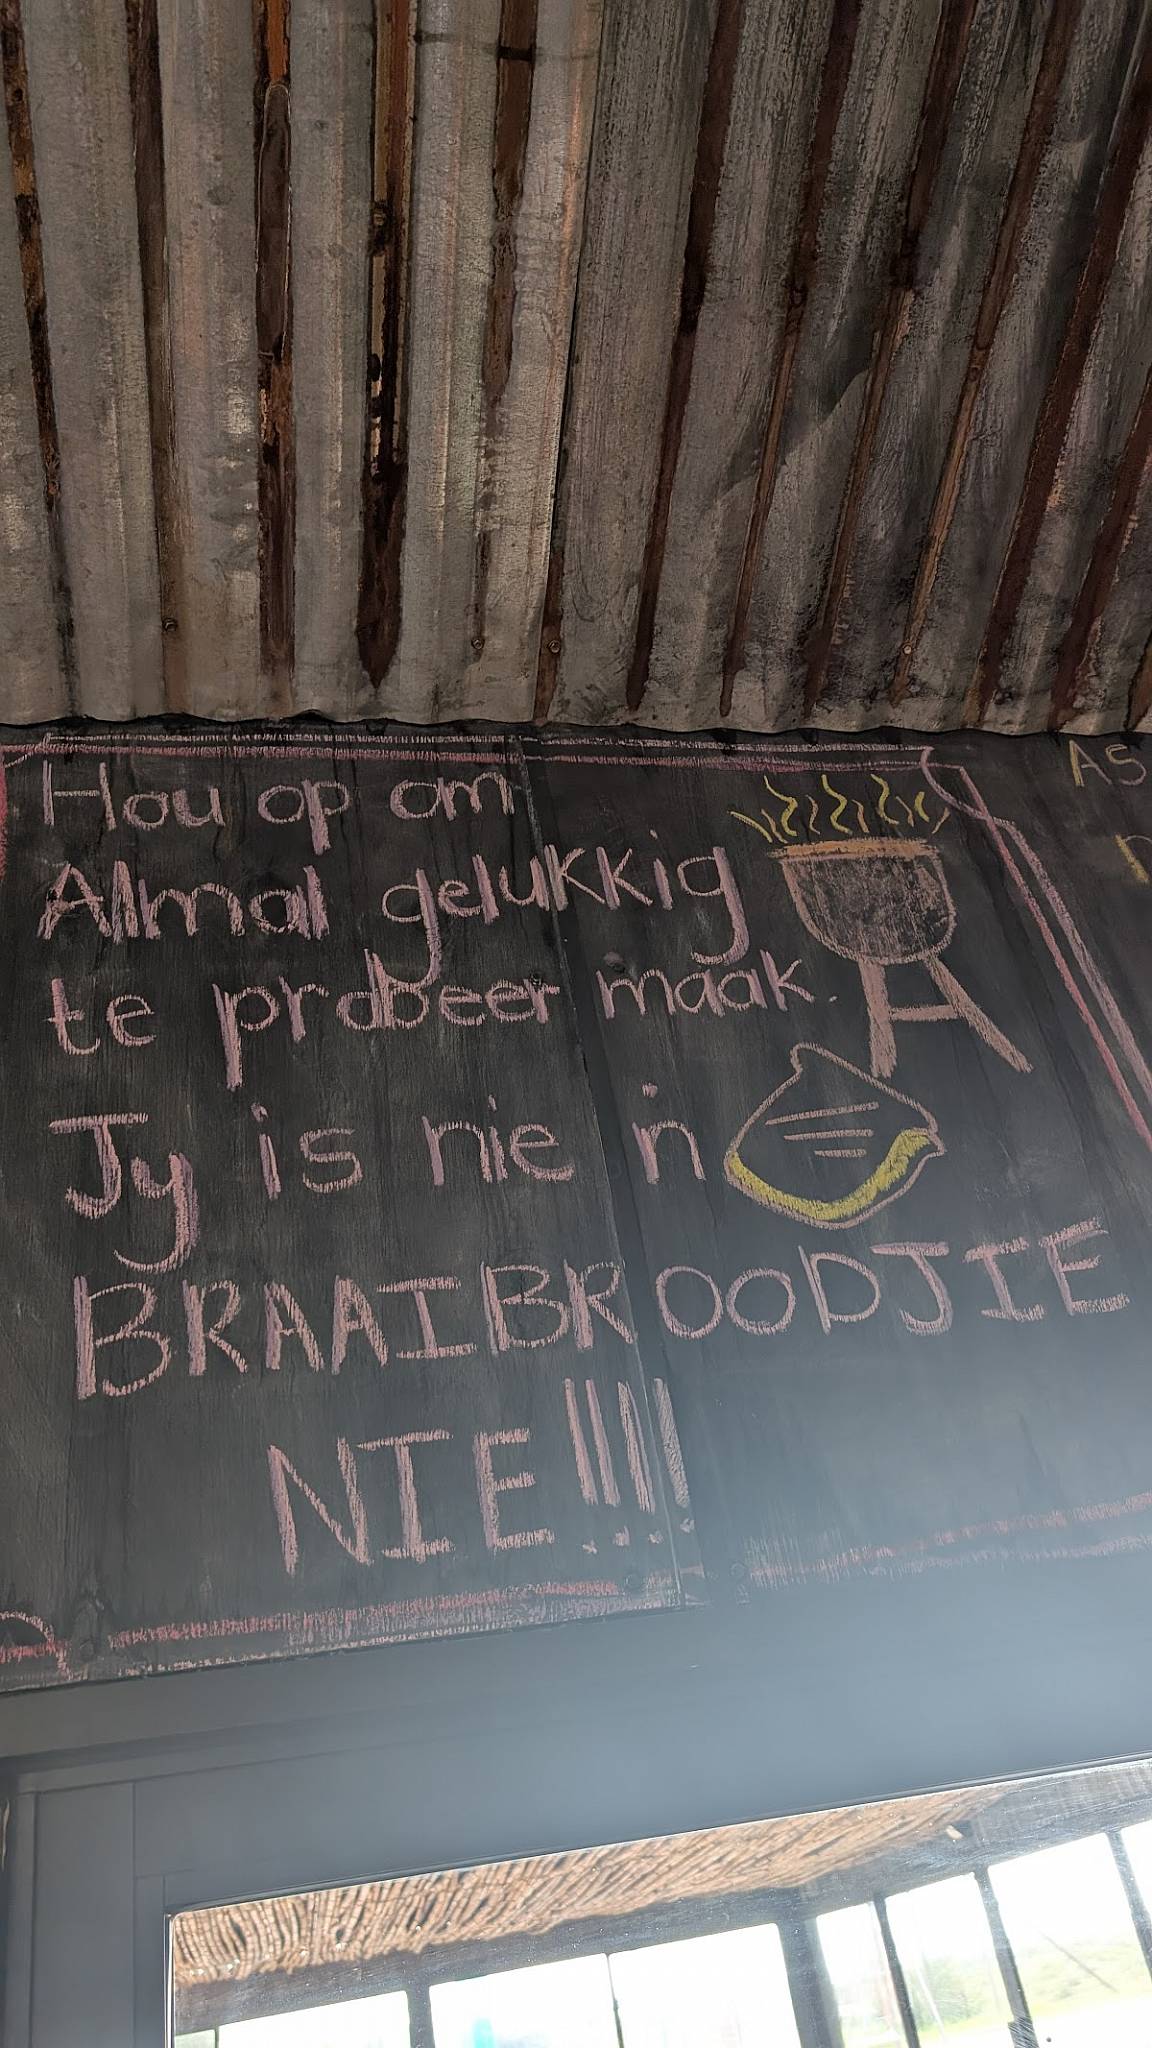 Hou op om
Almal gelukkig
te probeer maak.
Jy is nie 'n
BRAAIBROODJIE
NIE!!!!
As